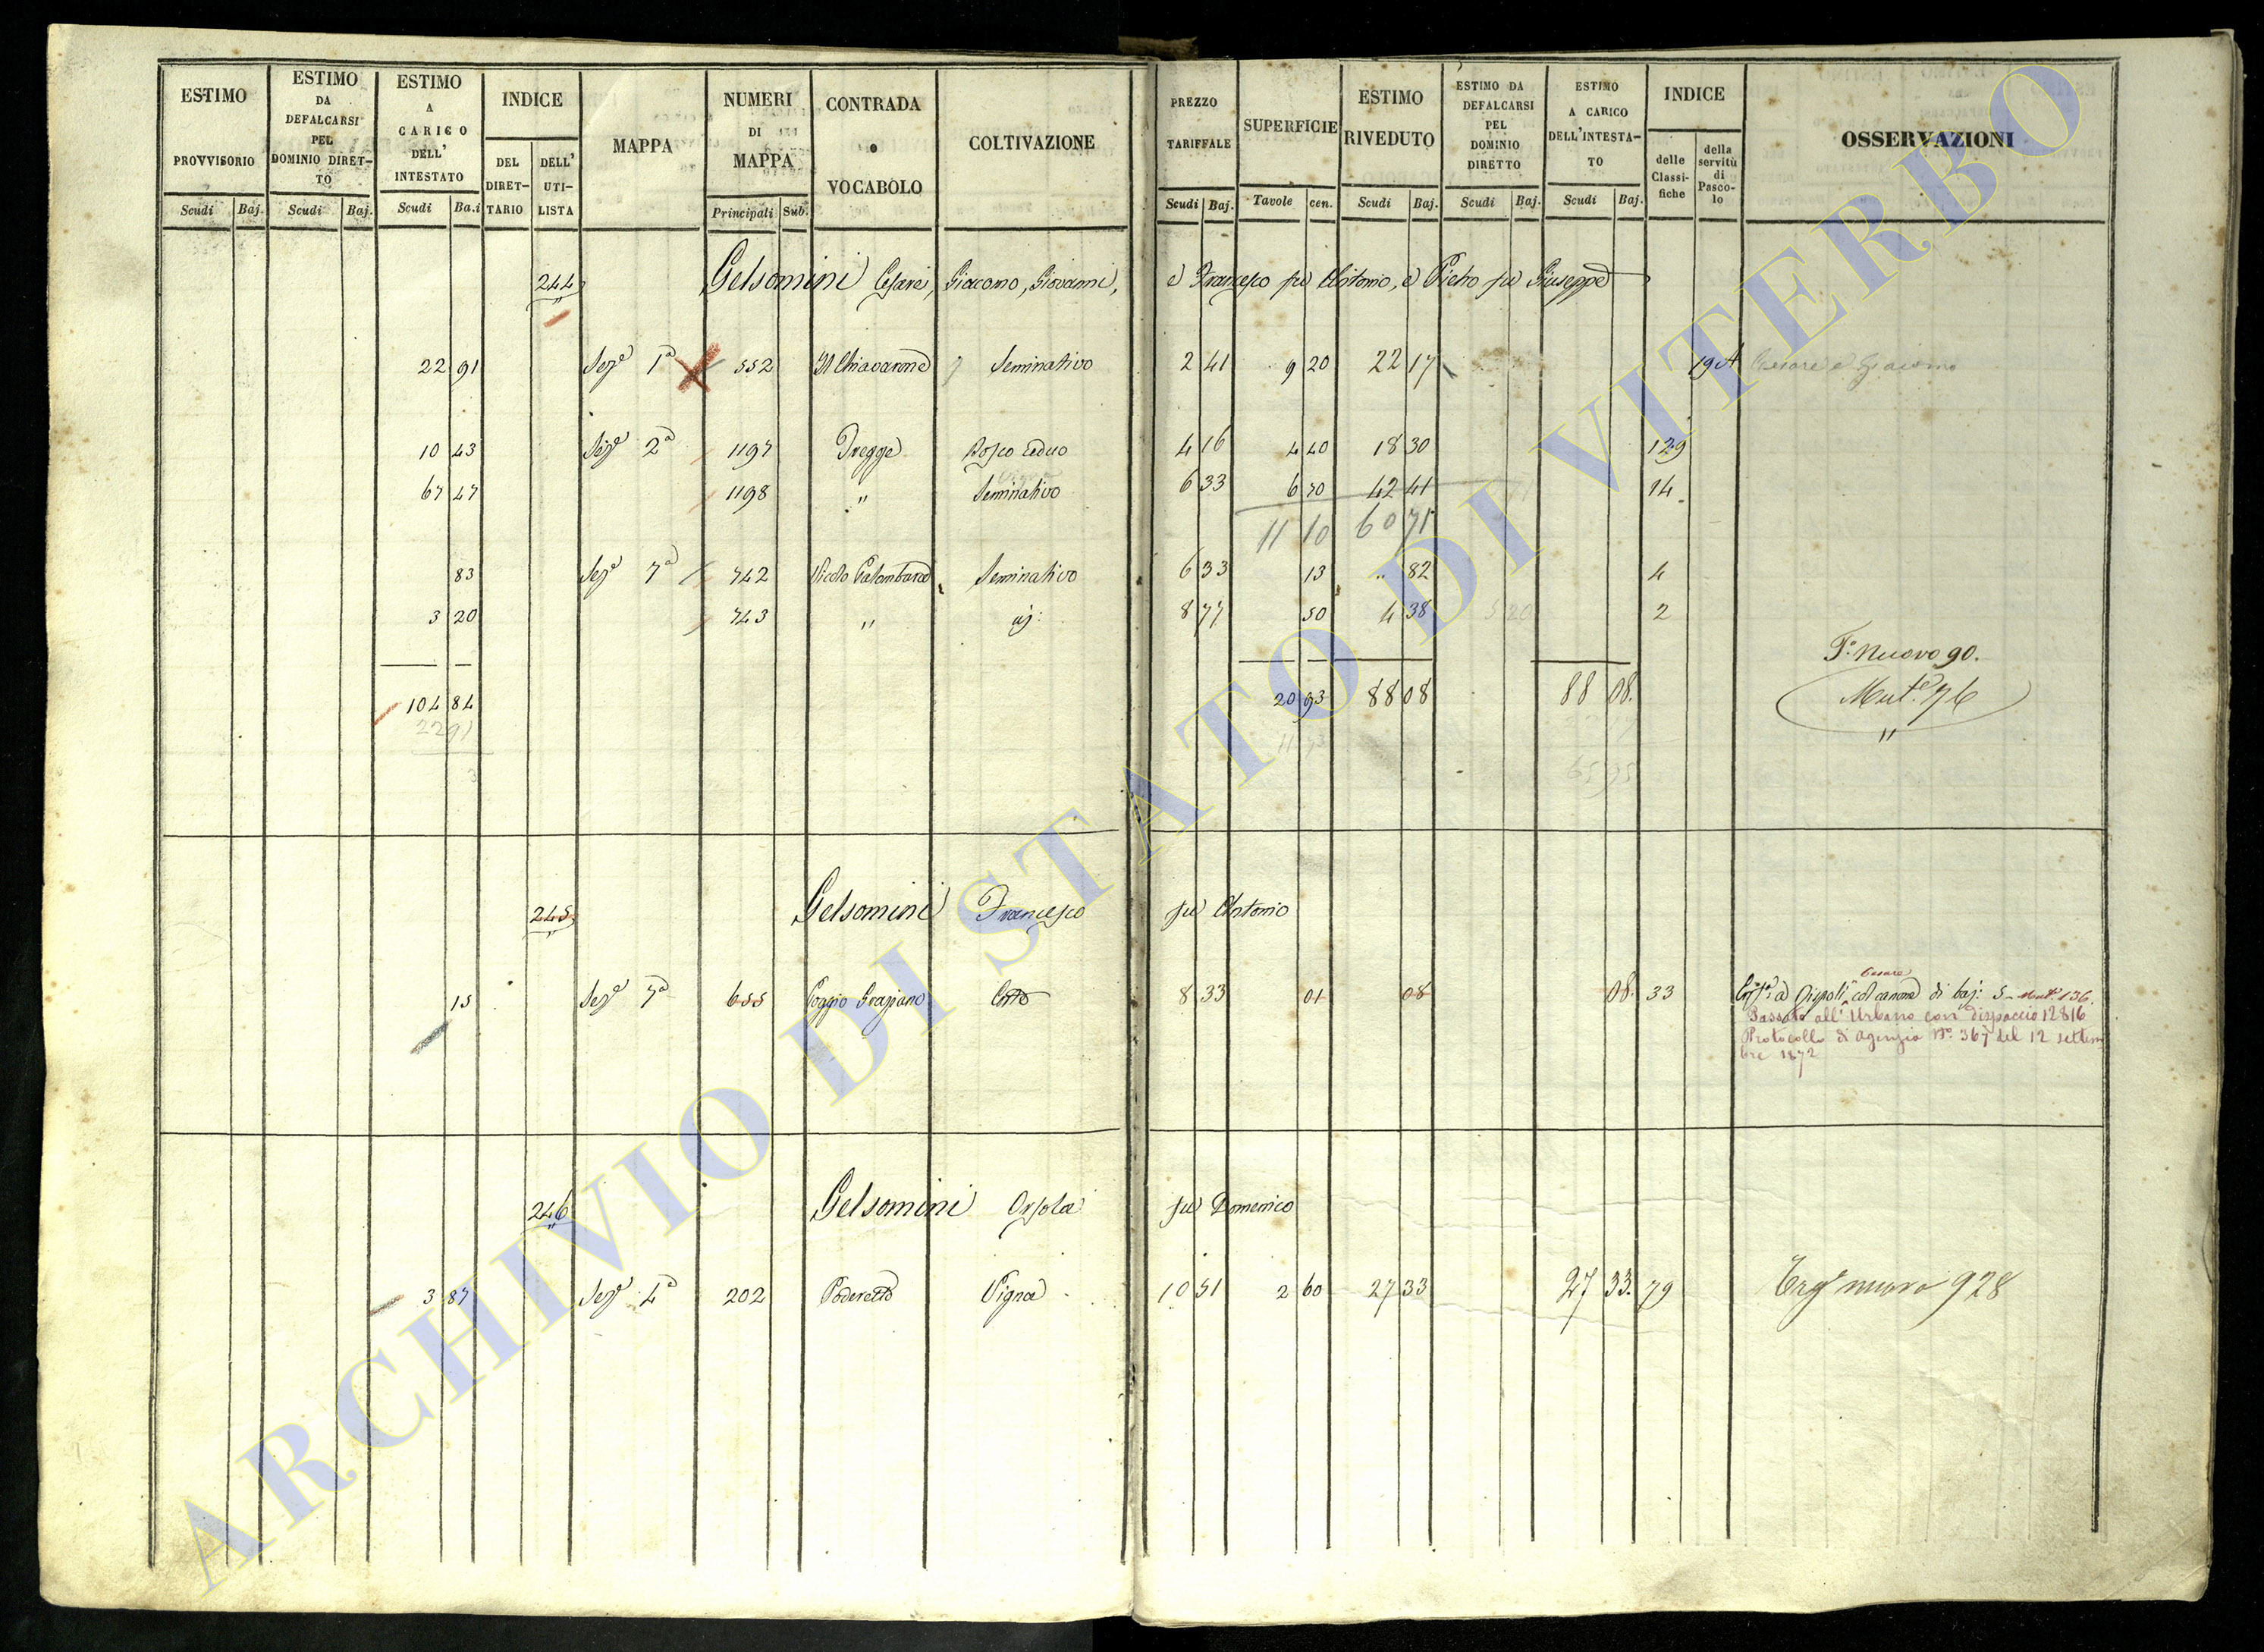 ESTIMO PROVVISORIO
ESTIMO DA DEFALCARSI PEL DOMINIO DIRETTO
ESTIMO A CARICO DELL' INTESTATO
INDICE
DEL DIRETTARIO
DELL' UTILISTA
MAPPA
NUMERI DI MAPPA
CONTRADA o VOCABOLO
COLTIVAZIONE
PREZZO TARIFFALE
SUPERFICIE
ESTIMO RIVEDUTO
ESTIMO DA DEFALCARSI PEL DOMINIO DIRETTO
ESTIMO A CARICO DELL'INTESTATO
INDICE
delle Classifiche
della servitù di Pascolo
OSSERVAZIONI
Scudi Baj. Scudi Baj. Scudi Ba.i Principali Sub. Scudi Baj. Tavole cen. Scudi Baj. Scudi Baj. Scudi Baj.
244 Gelsomini Cesare, Giacomo, Giovanni, e Francesco fu Antonio, e Pietro fu Giuseppe
22 91 Sez.e 1a 552 Il Chiavarone Seminativo 2 41 9 20 22 17 19 A Cesare e Giacomo
10 43 Sez.e 2a 1197 Tregge Bosco ceduo 4 16 4 40 18 30 129
67 47 1198 " Seminativo 6 33 6 70 42 41 14
11 10 60 71
83 Sez.e 7a 742 Vicolo Palombara Seminativo 6 33 13 " 82 4
3 20 743 " id: 8 77 50 4 38 2
T.o Nuovo 90.
104 84 20 93 88 08 88 08. Mut.e 76
22 91
245 Gelsomini Francesco fu Antonio
15 Sez.e 7a 655 Poggio Graziano Orto 8 33 01 08 08. 33 Cesare col canone di baj: 5 - Mut.e 136.
Passato all' Urbano con dispaccio 12816
Protocollo di agenzia N.o 367 del 12 settem
bre 1872
246 Gelsomini Orsola fu Domenico
3 87 Sez.e 4a 202 Poderetto Vigna 10 51 2 60 27 33 27 33. 79 nuovo 928
ARCHIVIO DI STATO DI VITERBO